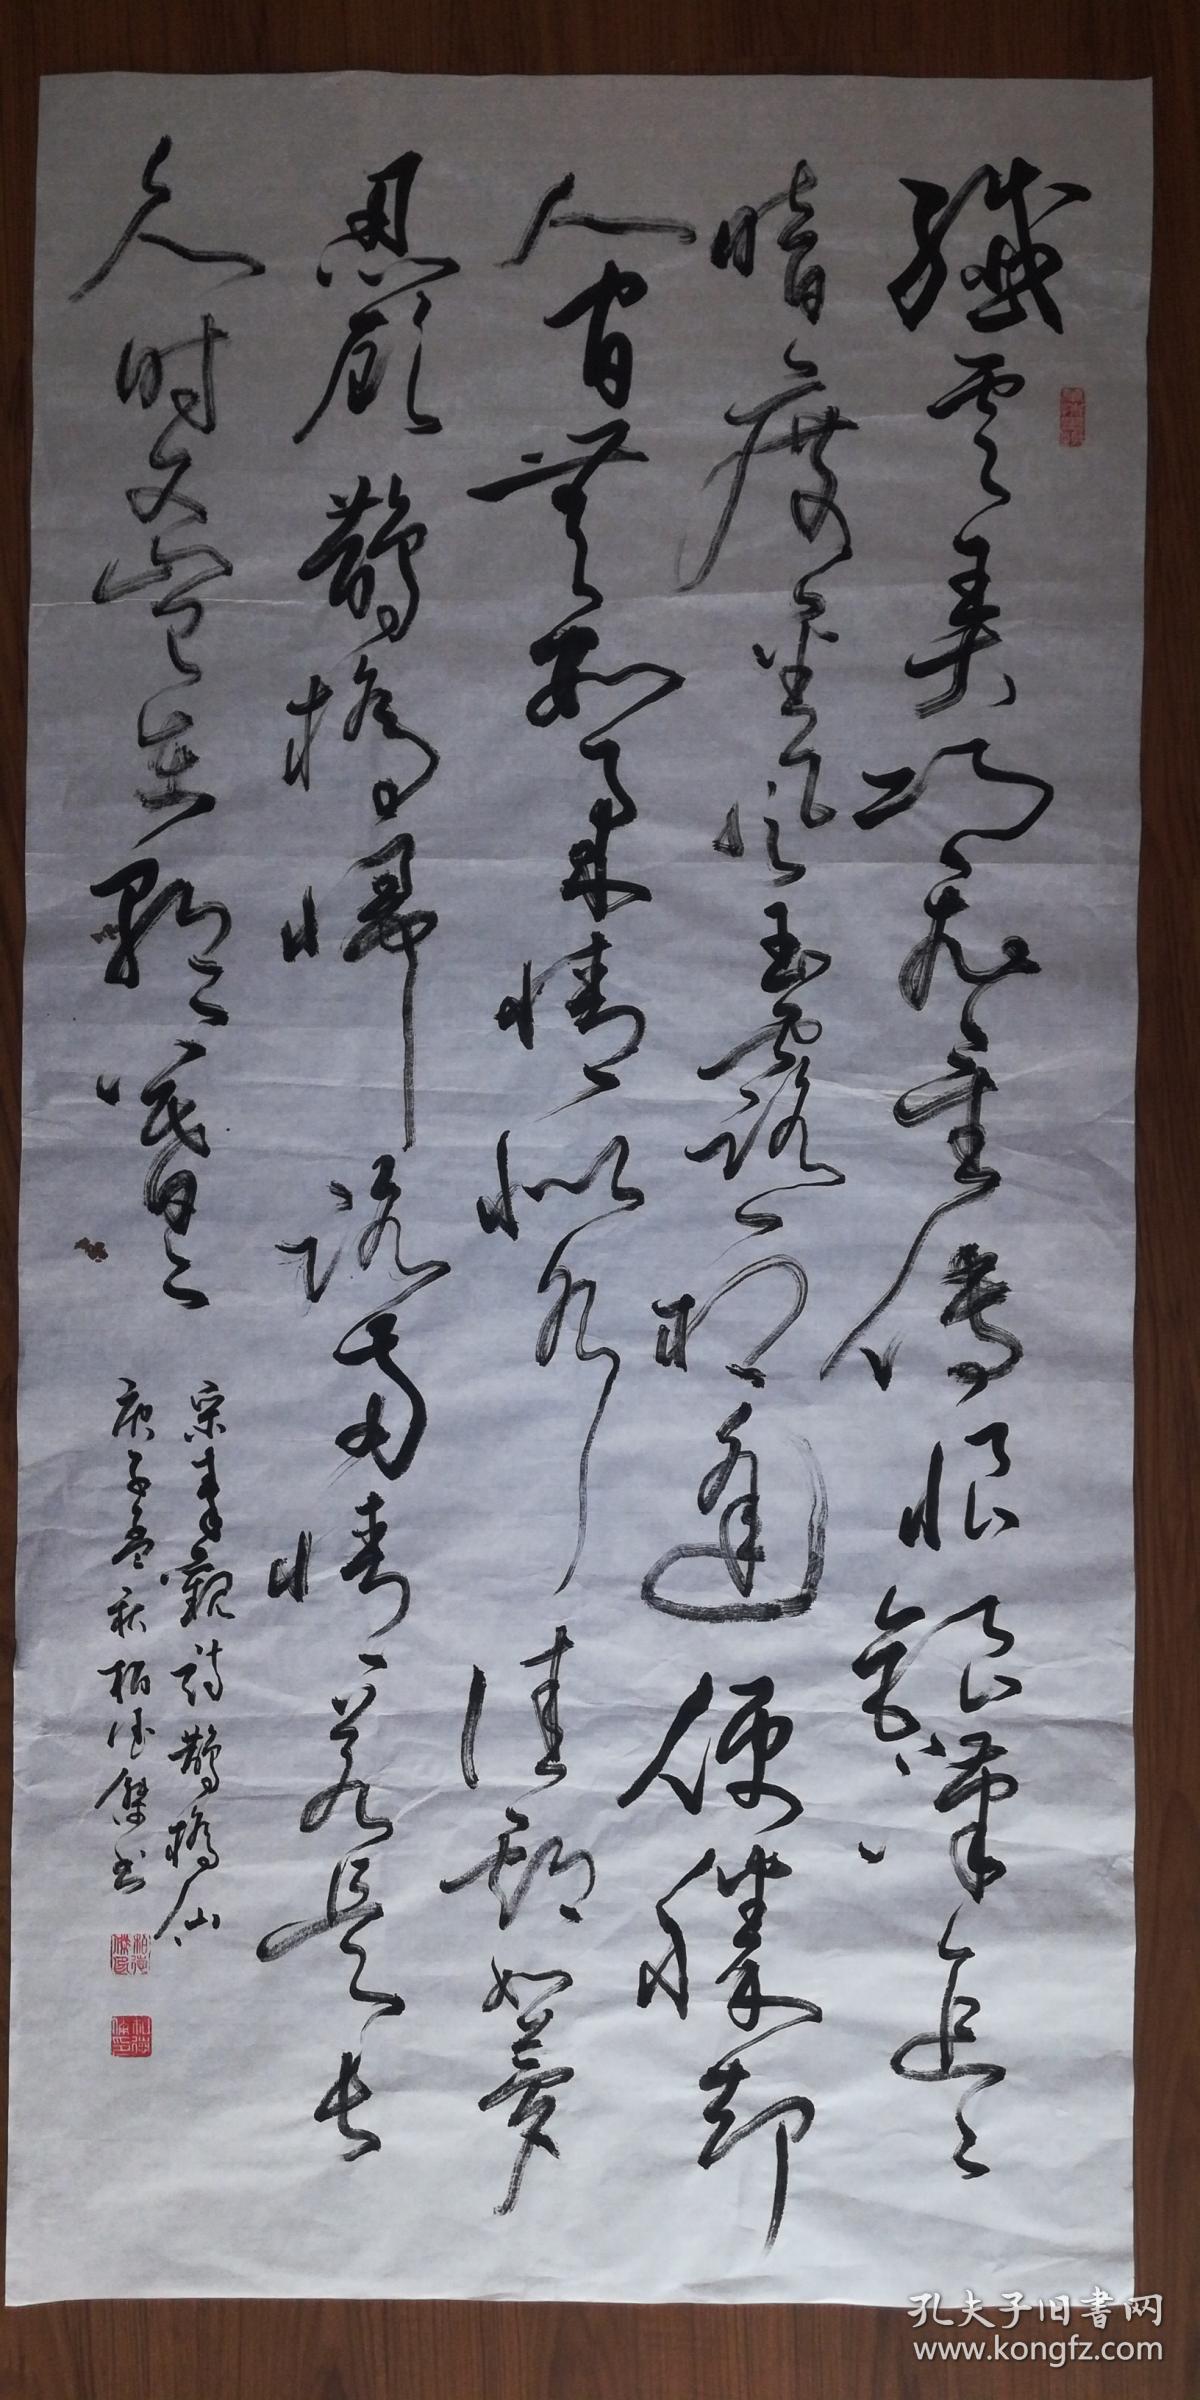 纖雲弄巧飛星傳恨銀漢迢々
暗度金風玉露一相逢便勝却
人間無數柔情似水佳期如夢
忍顧鵲橋歸路兩情若是長
久时又豈在朝々暮々
宋秦觀詩鵲橋仙
庚子孟秋柏德傑书
孔夫子旧書网
www.kongfz.com